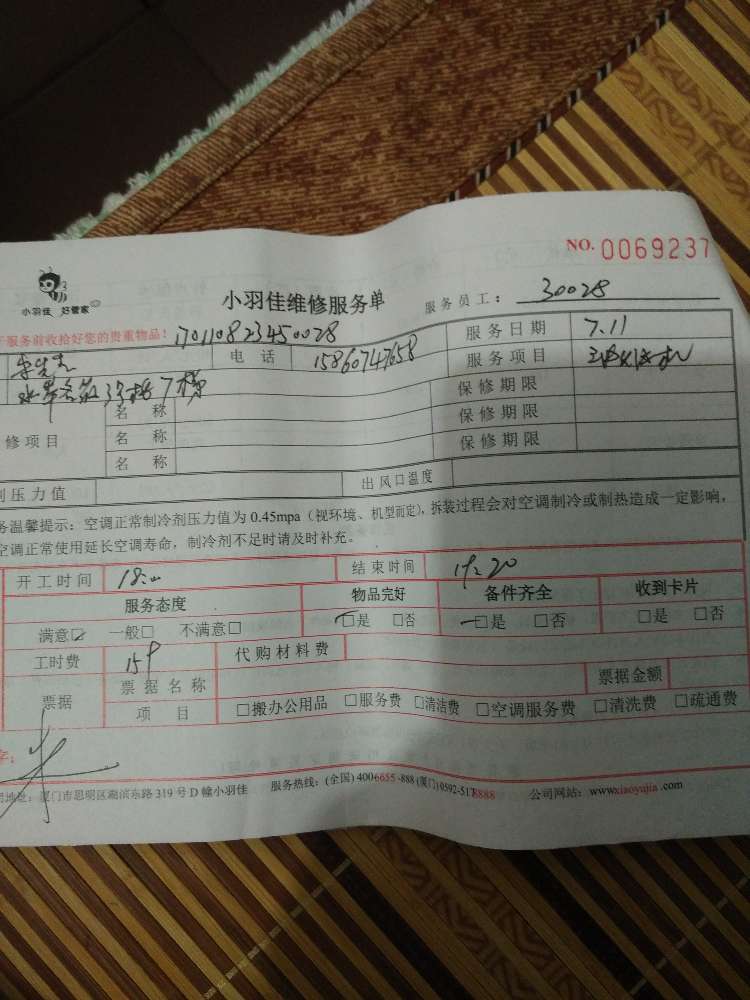 NO. 0069237
小羽佳 好管家
小羽佳维修服务单
服务员工： 30028
服务前收拾好您的贵重物品！ 170110823450028
服务日期 7.11
李先生 电 话 15860747658
服务项目
7楼
保修期限
名 称
保修期限
修项目 名 称
保修期限
名 称
压力值 出风口温度
务温馨提示：空调正常制冷剂压力值为 0.45mpa（视环境、机型而定），拆装过程会对空调制冷或制热造成一定影响，
空调正常使用延长空调寿命，制冷剂不足时请及时补充。
开工时间 结束时间 19:20
服务态度 物品完好 备件齐全 收到卡片
满意☑ 一般□ 不满意□ ☑是 □否 ☑是 □否 □是 □否
工时费 159 代购材料费
票据 票据名称 票据金额
项 目 □搬办公用品 □服务费 □清洁费 □空调服务费 □清洗费 □疏通费
字：
地址：厦门市思明区湖滨东路 319 号 D 幢小羽佳 服务热线：(全国) 4006655-888 (厦门) 0592-5178888 公司网站：www.xiaoyujia.com